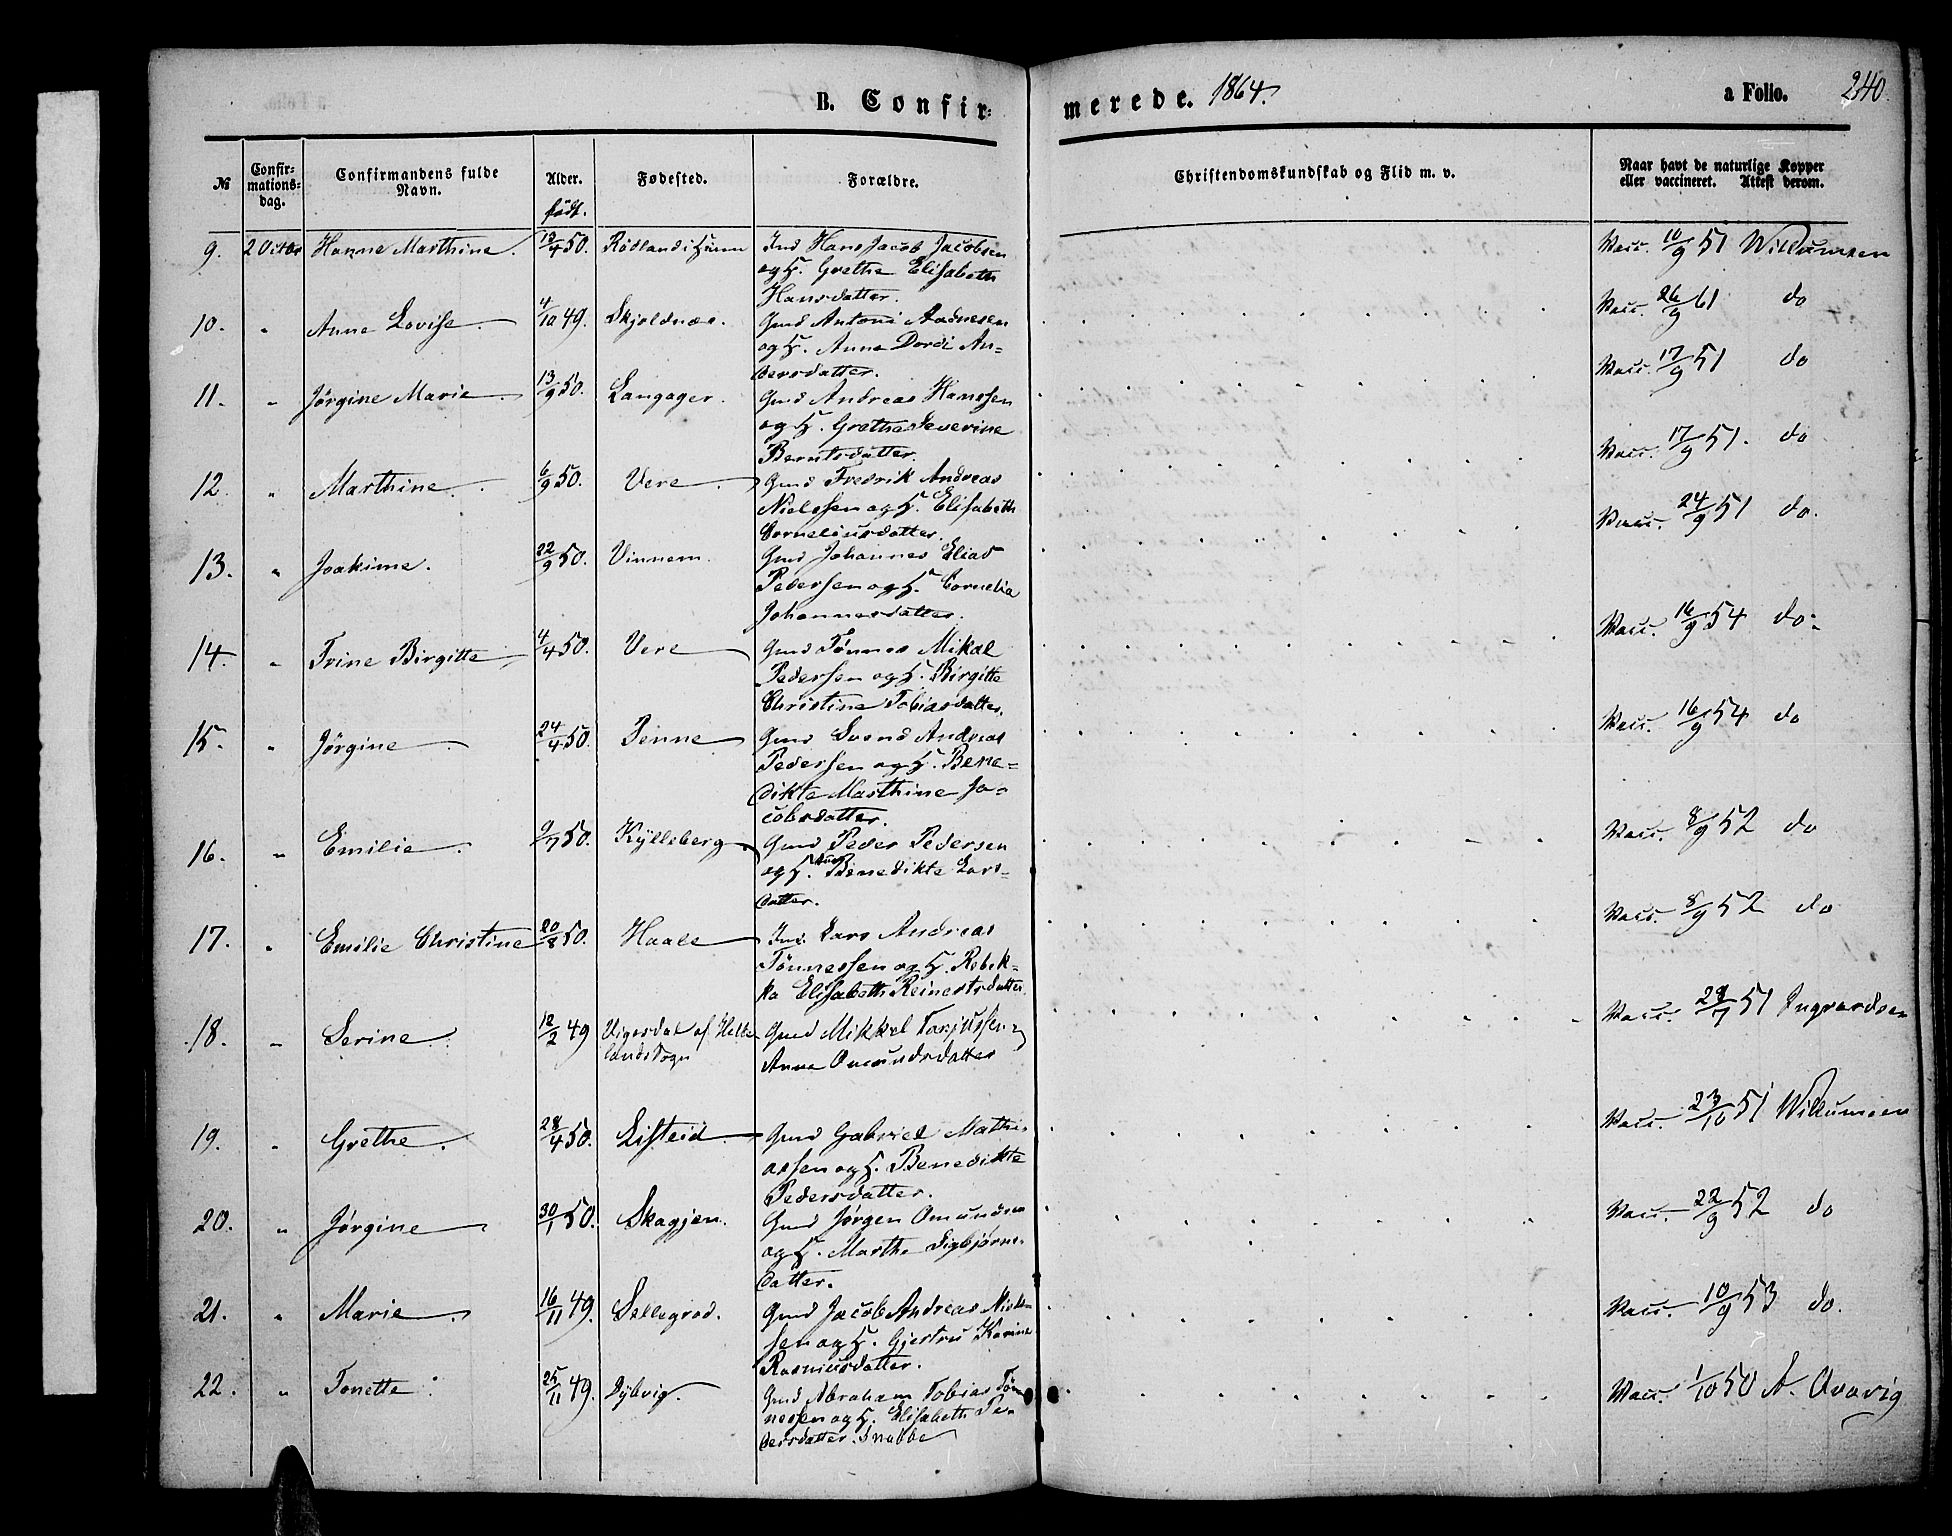 B. Confir=
merede. 1864.
a Folio. 240.
№
Confir-
mations-
dag.
Confirmandens fulde
Navn.
Alder.
født.
Fødested.
Forældre.
Christendomskundskab og Flid m. v.
Naar havt de naturlige Kopper
eller vaccineret. Attest derom.
9. 2 Octbr Hanne Marthine. /4 50. Rødland i Hinn Ind Hans Jacob Jacobsen
og H. Grethe Elisabeth
Hansdatter.
Vacc. 10/9 51 Willumsen
10. " Anne Lovise 4/10 49. Skjoldnæs. Gmd Antoni Aadnesen
og H. Anne Dordi An-
dersdatter.
Vacc. 26/9 61 do
11. " Jørgine Marie 13/9 50. Langager. Gmd Andreas Hanssen
og H. Grethe Severine
Berntsdatter.
Vacc. 17/9 51 do
12. " Marthine. 6/9 50. Vere Gmd Fredrik Andreas
Nielssen og H. Elisabeth
Corneliusdatter.
Vacc. 17/9 51. do
13. " Joakime. 22/9 50. Vinnem. Gmd Johannes Elias
Pedersen og H. Cornelia
Johannesdatter.
Vacc. 24/9 51 do.
14. " Trine Birgitte 4/4 50. Vere Gmd Tønnes Mikal
Pedersen og H. Birgitte
Christine Tobiasdatter.
Vacc. 16/9 54 do.
15. " Jørgine 24/4 50. Penne Gmd Svend Andreas
Pedersen og H. Bene=
dikte Marthine Ja-
cobsdatter.
Vacc. 16/9 54 do
16. " Emilie. 9/7 50. Kylleberg. Gmd Peder Pedersen
og H. Benedikte Lars-
datter.
Vacc. 8/9 52 do
17. " Emilie Christine 20/8 50. Haale Ind. Lars Andreas
Tønnessen og H. Rebek-
ka Elisabeth Reinertsdatter.
Vacc. 8/9 52 do
18. " Serine. 12/2 49 Vigesdal af Helle
landsSogn Gmd Mikkel Torjussen
Anne Omundsdatter
Vacc. 28/7 51 Ingvardsen
19. " Grethe. 28/4 50. Listeid Gmd Gabriel Mathi-
assen og H. Benedikte
Pedersdatter.
Vacc. 23/10 51 Willumsen
20. " Jørgine 30/1 50. Skagjen. Gmd Jørgen Omundsen
og H. Marthe Sigbjørns-
datter.
Vacc. 22/9 52 do
21. " Marie 16/11 49. Sellegrod. Gmd Jacob Andreas Niel-
sen og H. Gjertru Karine
Rasmusdatter.
Vacc. 10/9 53 do.
22. " Tonette 25/11 49. Dybvig. Gmd Abraham Tobias Tøn
nessen og H. Elisabeth Pe-
dersdatter. Snabbe
Vacc. 1/10 50 A. Aavig